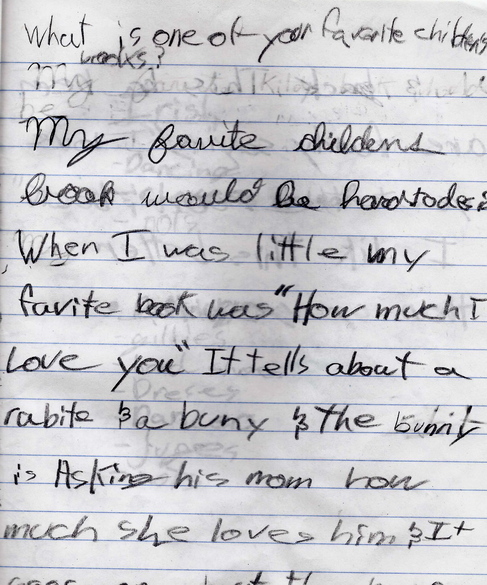 What is one of your favorite childrens
books?
My
My favite childens
book would be hardtodeci
When I was little my
favite book was "How much I
Love you" It tells about a
rabite & a buny & The bunnit
is Asking his mom how
much she loves him & It